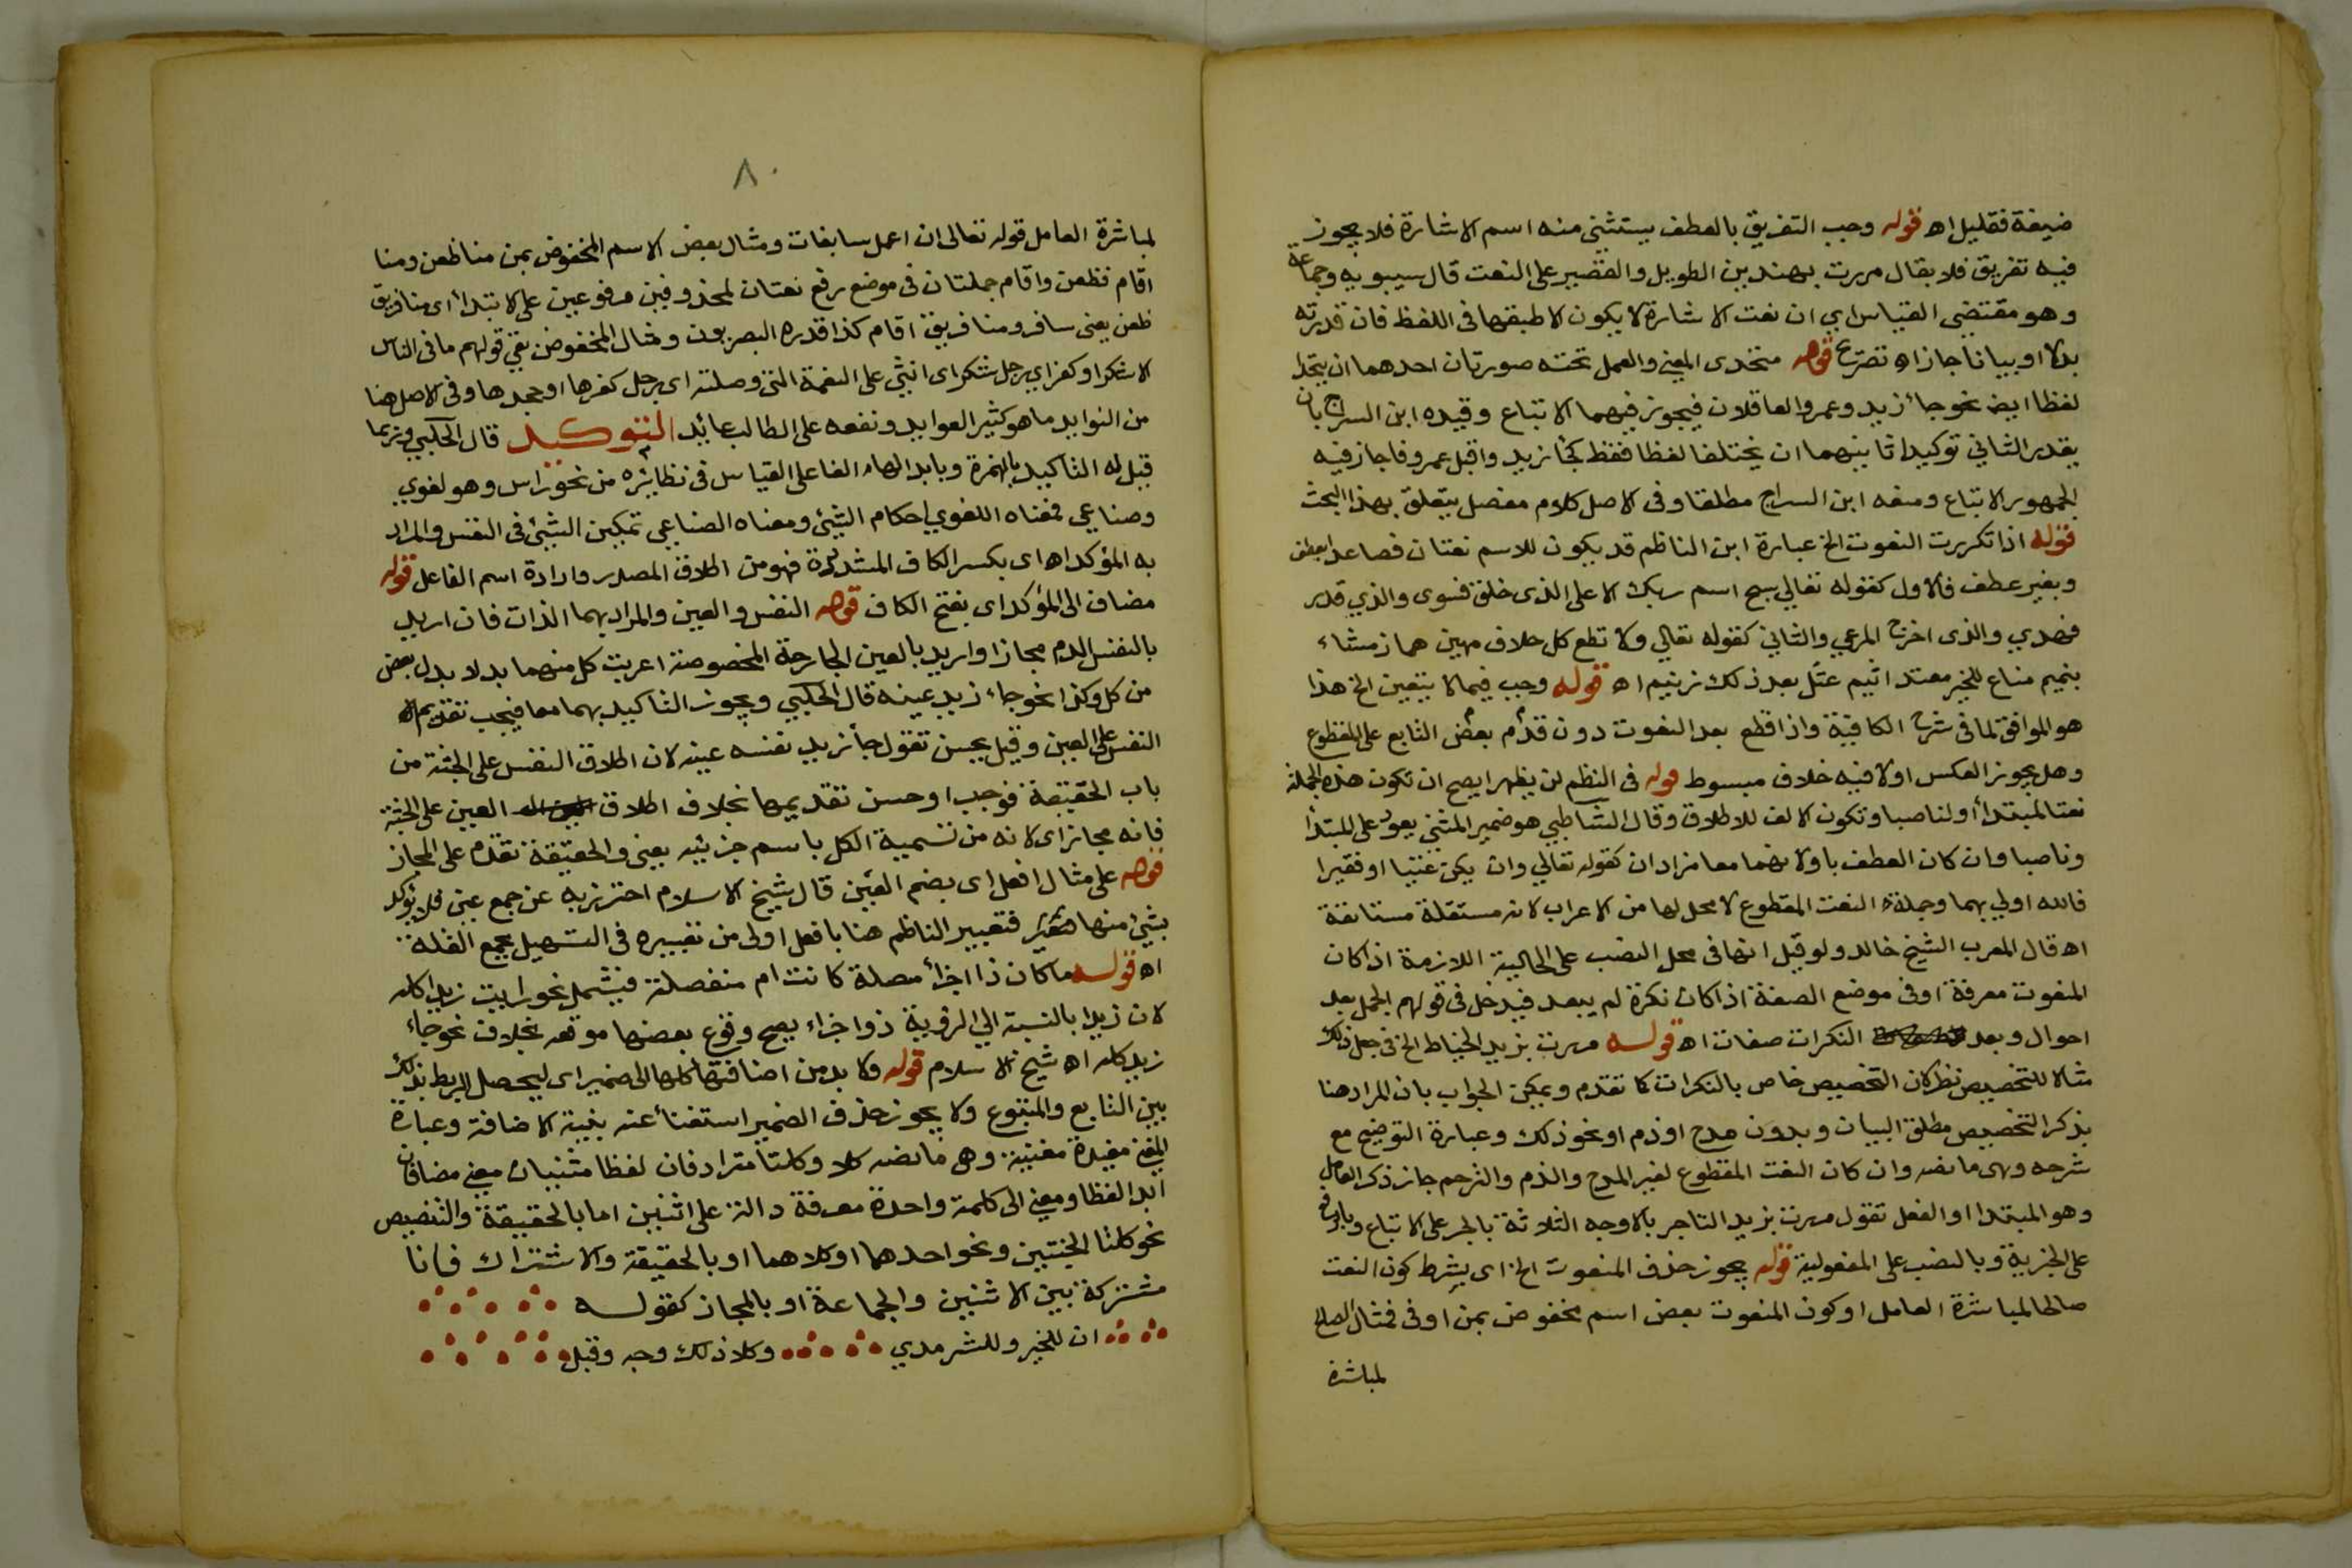 ضيفة فقليل اه قوله وجب التفريق بالعطف يستثنى منه اسم الاشارة فلا يجوز
فيه تفريق فلا يقال مررت بهذين الطويل والقصير على النعت قال سيبويه وجماعة
وهو مقتضى القياس اي ان نعت الاشارة لا يكون الا طبقها في اللفظ فان قدرته
بدلا او بيانا جاز اه تصريح قوله متحدى المعنى والعمل تحته صورتان احدهما ان يتحدا
لفظا ايض نحو جاء زيد وعمرو العاقلان فيجوز فيهما الاتباع وقيده ابن السراج بان
يقدر الثاني توكيدا ثانيهما ان يختلفا لفظا فقط كجاء زيد واقبل عمرو فاجاز فيه
الجمهور الاتباع ومنعه ابن السراج مطلقا وفى الاصل كلام مفصل يتعلق بهذا البحث
قوله اذا تكررت النعوت الخ عبارة ابن الناظم قد يكون للاسم نعتان فصاعدا بعطف
وبغير عطف فالاول كقوله تعالى سبح اسم ربك الاعلى الذى خلق فسوى والذي قدر
فهدي والذى اخرج المرعي والثاني كقوله تعالي ولا تطع كل حلاف مهين هماز مشاء
بنميم مناع للخير معتد اثيم عتل بعد ذلك زنيم اه قوله وجب فيما لا يتعين الخ هذا
هو الموافق لما فى شرح الكافية واذا قطع بعد النعوت دون قدم بعض التابع على المقطوع
وهل يجوز العكس اولا فيه خلاف مبسوط قوله فى النظم لن يظهرا يصح ان تكون هذه الجملة
نعتا لمبتدأ او لناصبا وتكون الالف للاطلاق وقال الشاطبي هو ضمير المثنى يعود على المبتدأ
وناصبا وان كان العطف باو لانهما معا مرادان كقوله تعالي وان يكن غنيا او فقيرا
فالله اولي بهما وجملة النعت المقطوع لا محل لها من الاعراب لانه مستقلة مستانفة
اه قال المعرب الشيخ خالد ولو قيل انها فى محل النصب على الحالية اللازمة اذا كان
المنعوت معرفة اوفى موضع الصفة اذا كان نكرة لم يبعد فيدخل فى قولهم الجمل بعد
احوال وبعد النكرات صفات اه قوله مررت بزيد الخياط الخ فى جعل ذلك
مثالا للتخصيص نظر لان التخصيص خاص بالنكرات كما تقدم ويمكن الجواب بان المراد هنا
بذكر التخصيص مطلق البيان وبدون مدح او ذم او نحو ذلك وعبارة التوضيح مع
شرحه وهى ما نصه وان كان النعت المقطوع لغير المدح والذم والترحم جاز ذكر العامل
وهو المبتدا او الفعل تقول مررت بزيد التاجر بالاوجه الثلاثة بالجر على الاتباع وبالرفع
على الخبرية وبالنصب على المفعولية قوله يجوز حذف المنعوت الخ اى بشرط كون النعت
صالحا لمباشرة العامل او كون المنعوت بعض اسم مخفوض بمن او فى فمثال الصالح
لمباشرة
٨٠
لمباشرة العامل قوله تعالى ان اعمل سابغات ومثال بعض الاسم المخفوض بمن منا ظعن ومنا
اقام فظعن واقام جملتان فى موضع رفع نعتان لمحذوفين مرفوعين على الابتدأ اى منا فريق
ظعن يعنى سافر ومنا فريق اقام كذا قدره البصريون ومثال المخفوض بفى قولهم ما فى الناس
الا شكرا وكفر اي رجل شكر اى اثنى على النعمة التى وصلته اى رجل كفرها او جحدها وفى الاصل هنا
من الفوايد ما هو كثير العوايد ونفعه على الطالب عائد التوكيد قال الحلبي وربما
قيل له التاكيد بالهمزة وبابدالها الفا على القياس فى نظائره من نحو راس وهو لغوي
وصناعي فمعناه اللغوي احكام الشيئ ومعناه الصناعي تمكين الشيئ فى النفس والمراد
به المؤكد اه اى بكسر الكاف المشددة فهو من اطلاق المصدر وارادة اسم الفاعل قوله
مضاف الى المؤكد اى بفتح الكاف قوله النفس والعين والمراد بهما الذات فان اريد
بالنفس الدم مجازا واريد بالعين الجارحة المخصوصة اعربت كل منهما بدلا بدل بعض
من كل وكذا نحو جاء زيد عينه قال الحلبي ويجوز التاكيد بهما معا فيجب تقديم
النفس على العين وقيل يحسن تقول جأ زيد نفسه عينه لان اطلاق النفس على الجثة من
باب الحقيقة فوجب او حسن تقديمها بخلاف اطلاق العين على الجثة
فانه مجاز اى لانه من تسمية الكل باسم جزئيه يعنى والحقيقة تقدم على المجاز
قوله على مثال افعل اى بضم العين قال شيخ الاسلام احترز به عن جمع عين فلا يؤكد
بشيئ منها فتعبير الناظم هنا بافعل اولى من تعبيره فى التسهيل بجمع القلة
اه قوله ما كان ذا اجزأ مصلة كانت ام منفصلة فيشمل نحو رايت زيدا كله
لان زيدا بالنسبة الي الرؤية ذو اجزاء يصح وقوع بعضها موقعه بخلاف نحو جاء
زيد كله اه شيخ الاسلام قوله ولا بد من اضافتها كلها الى ضمير اى ليحصل الربط بذلك
بين التابع والمتبوع ولا يجوز حذف الضمير استغناء عنه بنية الاضافة وعبارة
المغنى مفيدة مغنية وهى ما نصه كلا وكلتا مترادفان لفظا مثنيان معنى مضافان
ابدا لفظا ومعنى الى كلمة واحدة معرفة دالة على اثنين اما بالحقيقة والتنصيص
نحو كلتا الجنتين ونحو احدهما او كلاهما او بالحقيقة والاشتراك فانا
مشتركة بين الاثنين والجماعة او بالمجاز كقوله
ان للخير وللشر مدي وكلا ذلك وجه وقبل